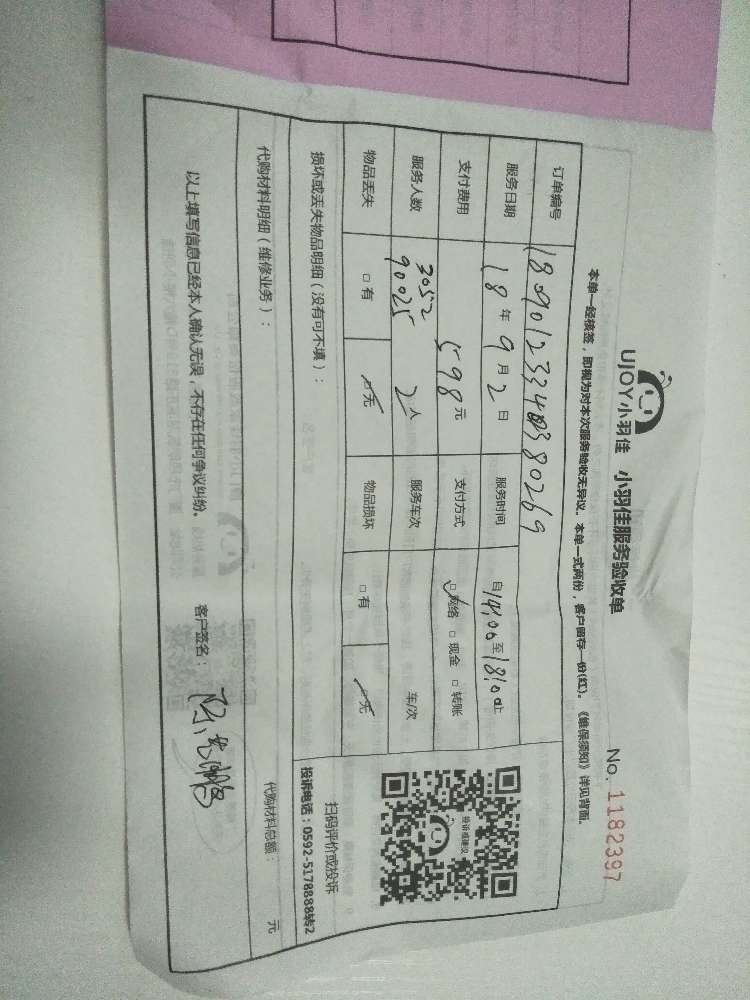 UJOY小羽佳 小羽佳服务验收单 No. 1182397
本单一经核签，即视为对本次服务验收无异议。本单一式两份，客户留存一份(红)。《维保须知》详见背面。
订单编号
服务日期 18年9月2日 服务时间 自14:00至18:00止
支付费用 598元 支付方式 □网络 □现金 □转账
服务人数 3052 90025 2人 服务车次 车/次
物品丢失 □有 □无 物品损坏 □有 □无
投诉或建议
扫码评价或投诉
投诉电话：0592-5178888转2
损坏或丢失物品明细（没有可不填）：
代购材料明细（维修业务）： 代购材料总额： 元
以上填写信息已经本人确认无误，不存在任何争议纠纷。 客户签名：